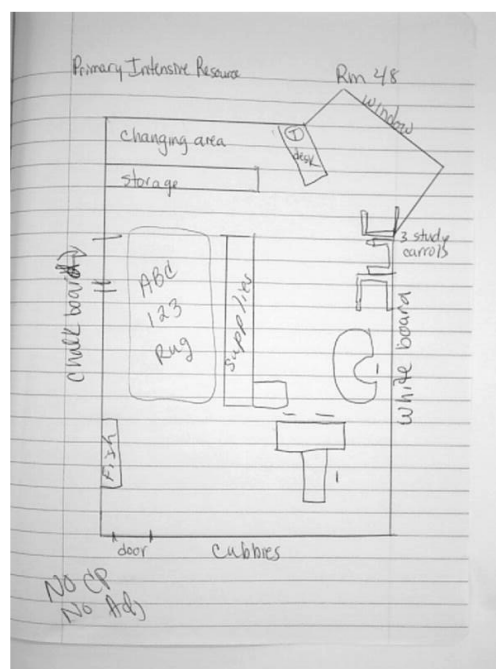 Primary Intensive Resource
Rm 48
window
changing area
T
desk
storage
3 study
carrols
chalk board
ABC
123
Rug
supplies
white board
Fish
door
cubbies
No CP
No Adj